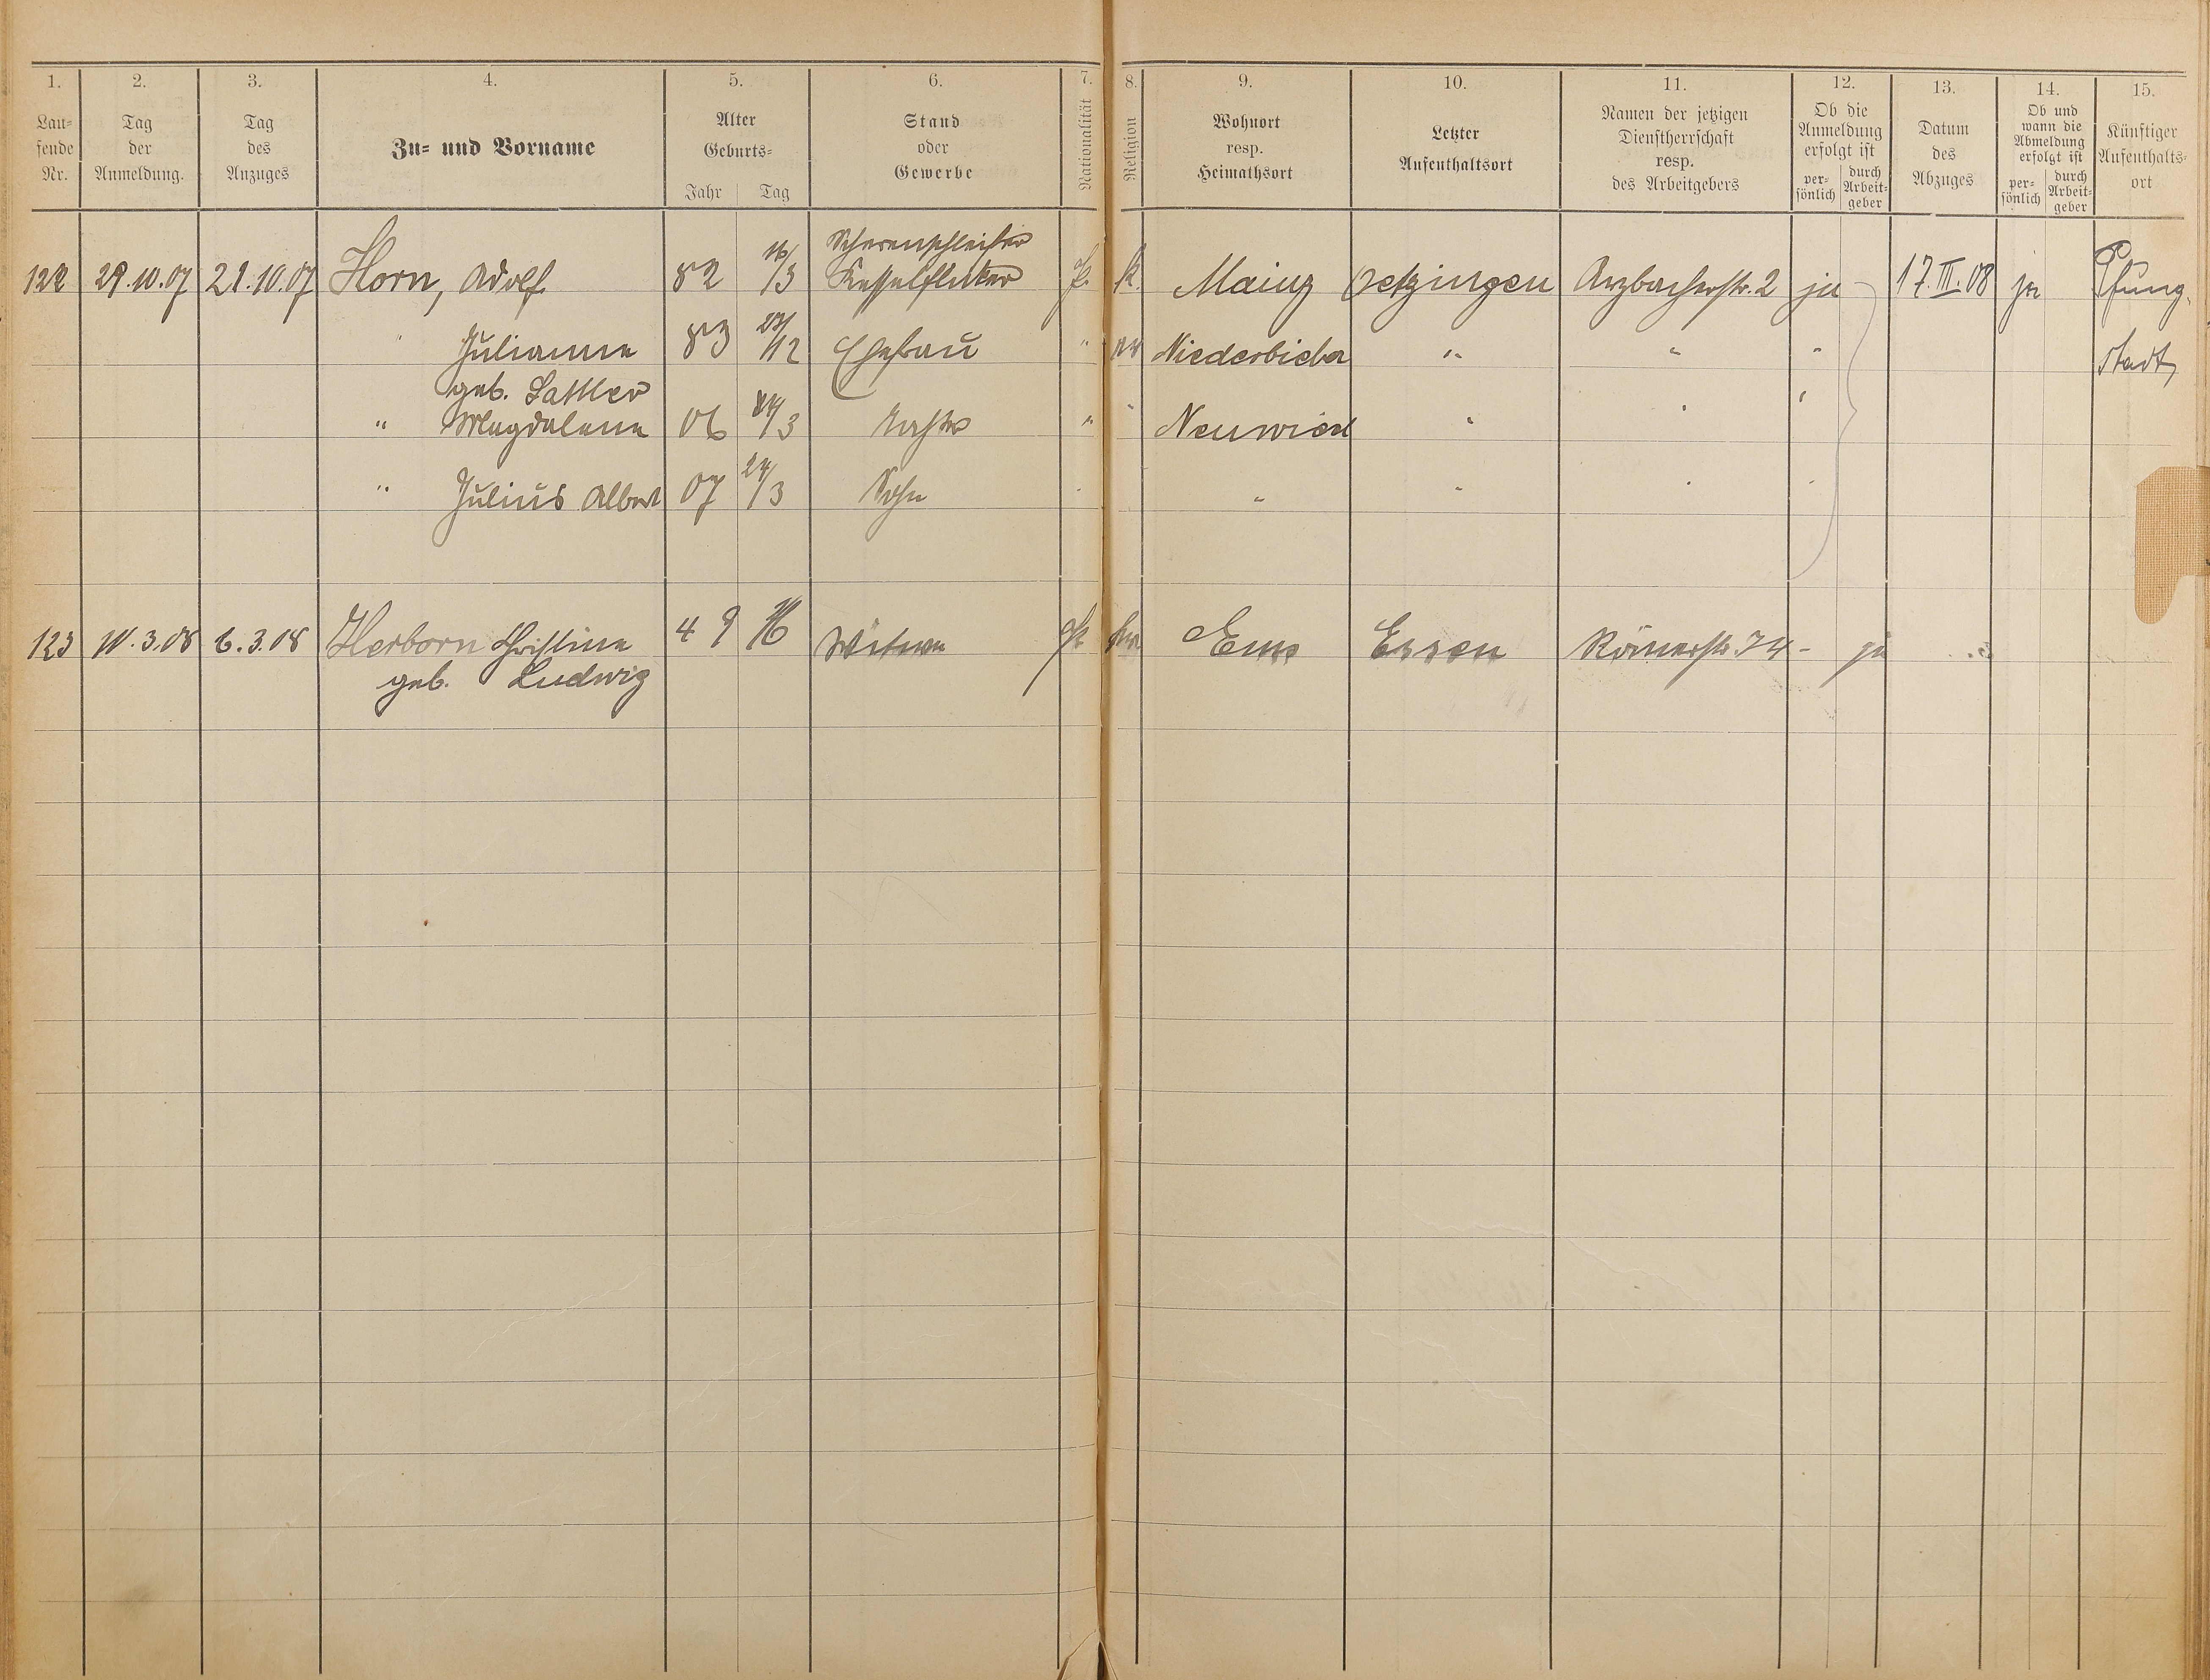 1. 2. 3. 4. 5. 6. 7. 8. 9. 10. 11. 12. 13. 14. 15.
Lau-
fende
Nr.
Tag
der
Anmeldung.
Tag
des
Anzuges
Zu- und Vorname
Alter
Geburts-
Jahr Tag
Stand
oder
Gewerbe
Nationalität
Religion
Wohnort
resp.
Heimathsort
Letzter
Aufenthaltsort
Namen der jetzigen
Dienstherrschaft
resp.
des Arbeitgebers
Ob die
Anmeldung
erfolgt ist
per-
sönlich
durch
Arbeit-
geber
Datum
des
Abzuges
Ob und
wann die
Abmeldung
erfolgt ist
per-
sönlich
durch
Arbeit-
geber
Künftiger
Aufenthalts-
ort
Scherenschleifer
122 29.10.07 21.10.07 Horn, Adolf 82 16/3 Kesselflicker P. k. Mainz Oetzingen Arzbacherstr. 2 ja 17.III.08 ja Pfung-
" Julianne 83 /12 Ehefrau " Niederbieber " " " stadt
geb. Sattler
" Magdalena 06 /3 Tochter " " Neuwied " " "
" Julius Albert 07 24/3 Sohn " " " " "
123 10.3.08 6.3.08 Herborn Christine 49 Witwe Pr. Ems Essen Römerstr. 74 - ja
geb. Ludwig